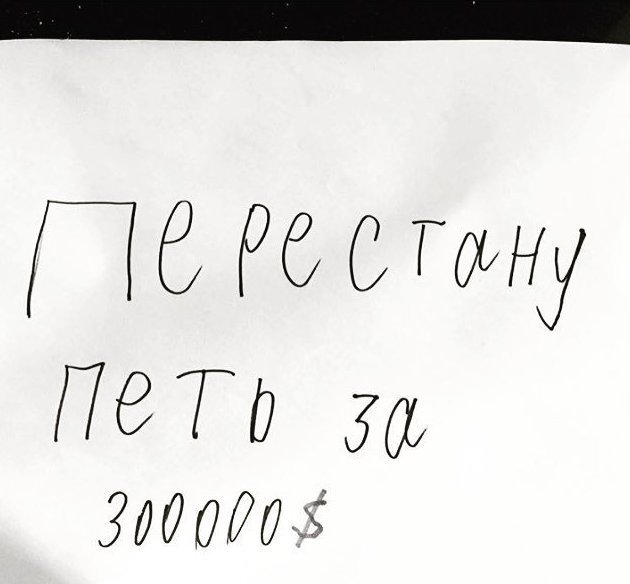 Перестану
петь за
300000$